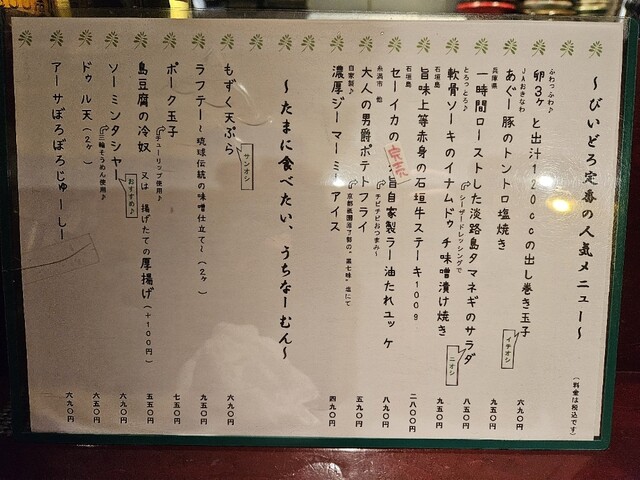 〜びいどろ定番の人気メニュー〜
(料金は税込です)
ふわっふわ♪
卵3ヶと出汁120ccの出し巻き玉子
イチオシ
六九〇円
JAおきなわ
あぐー豚のトントロ塩焼き
九五〇円
兵庫県
一時間ローストした淡路島タマネギのサラダ
シーザードレッシングで
八五〇円
とろっとろ♪
軟骨ソーキのイナムドゥチ味噌漬け焼き
ニオシ
九五〇円
石垣島
旨味上等赤身の石垣牛ステーキ100g
二八〇〇円
石垣島
セーイカの旨自家製ラー油たれユッケ
完売
八九〇円
糸満市 他
大人の男爵ポテトフライ
チビチビおつまみ〜
五九〇円
自家製♪
濃厚ジーマーミーアイス
京都祇園原了郭の"黒七味"塩にて
四九〇円
〜たまに食べたい、うちなーむん〜
もずく天ぷら
サンオシ
六九〇円
ラフテー〜琉球伝統の味噌仕立て〜(2ヶ)
九五〇円
ポーク玉子
チューリップ使用♪
七五〇円
島豆腐の冷奴 又は 揚げたての厚揚げ(+100円)
五五〇円
ソーミンタシャー
三輪そうめん使用♪
おすすめ♪
六九〇円
ドゥル天(2ヶ)
六五〇円
アーサぼろぼろじゅーしー
六九〇円